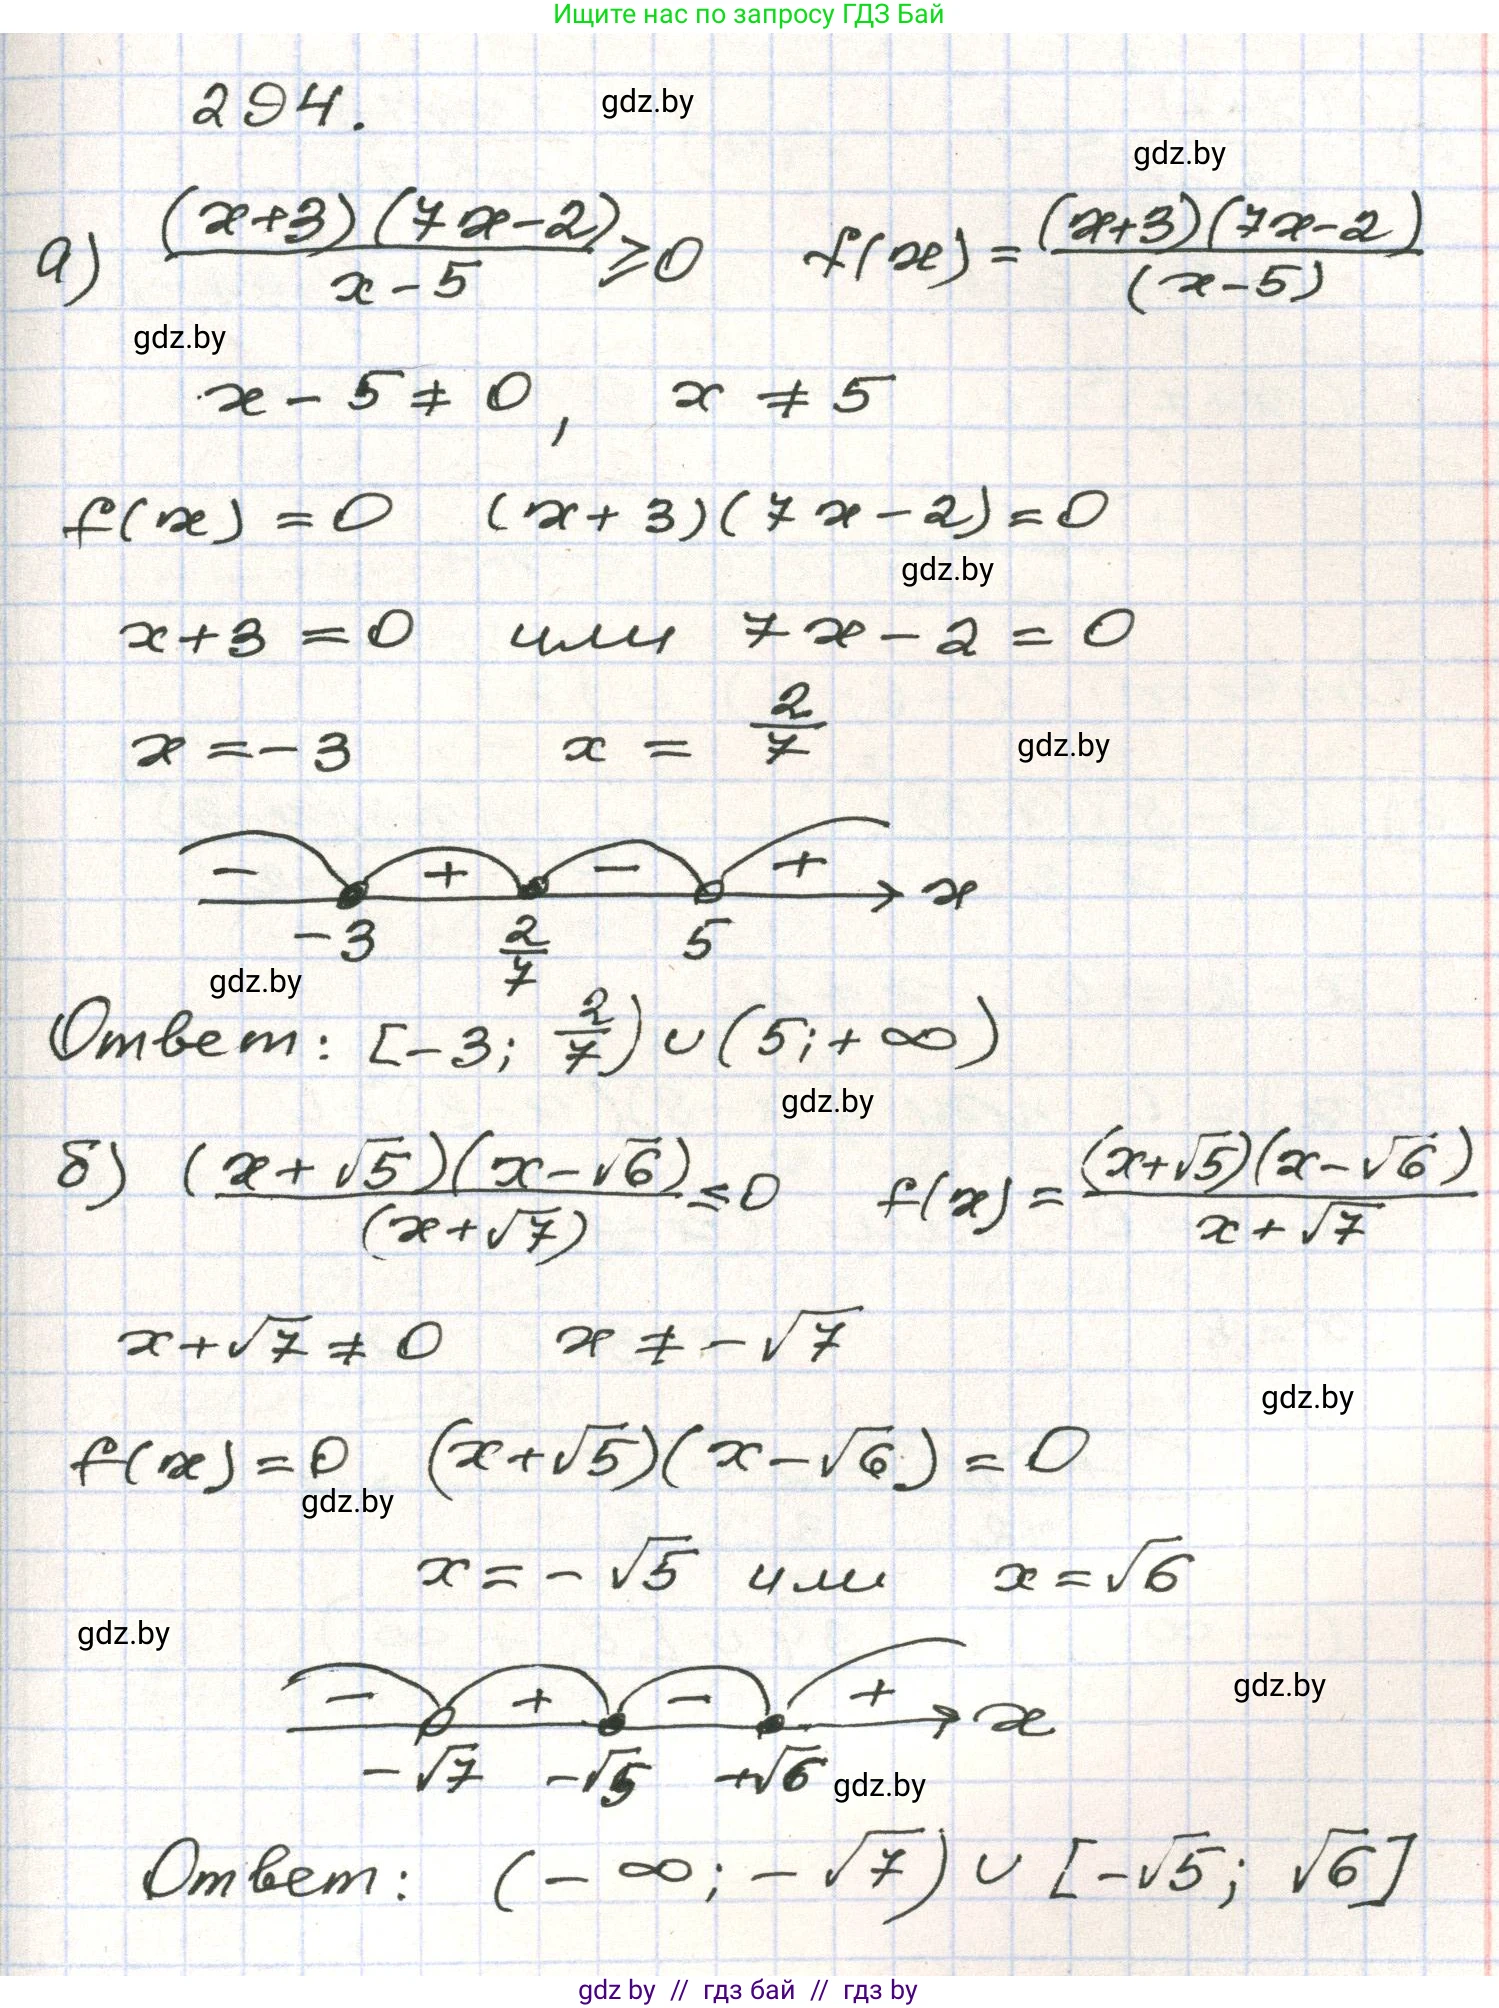 Ищите нас по запросу ГДЗ Бай
294.
gdz.by
gdz.by
а) (x+3)(7x-2)/(x-5) ≥ 0 f(x) = (x+3)(7x-2)/(x-5)
gdz.by
x - 5 ≠ 0, x ≠ 5
f(x) = 0 (x+3)(7x-2) = 0
gdz.by
x+3 = 0 или 7x - 2 = 0
x = -3 x = 2/7
gdz.by
- + - + x
-3 2/7 5
gdz.by
Ответ: [-3; 2/7) ∪ (5; +∞)
gdz.by
б) (x+√5)(x-√6)/(x+√7) ≤ 0 f(x) = (x+√5)(x-√6)/x+√7
x+√7 ≠ 0 x ≠ -√7
gdz.by
f(x) = 0 (x+√5)(x-√6) = 0
gdz.by
x = -√5 или x = √6
gdz.by
gdz.by
- + - + x
-√7 -√5 +√6
gdz.by
Ответ: (-∞; -√7) ∪ [-√5; √6]
gdz by // гдз бай // гдз by